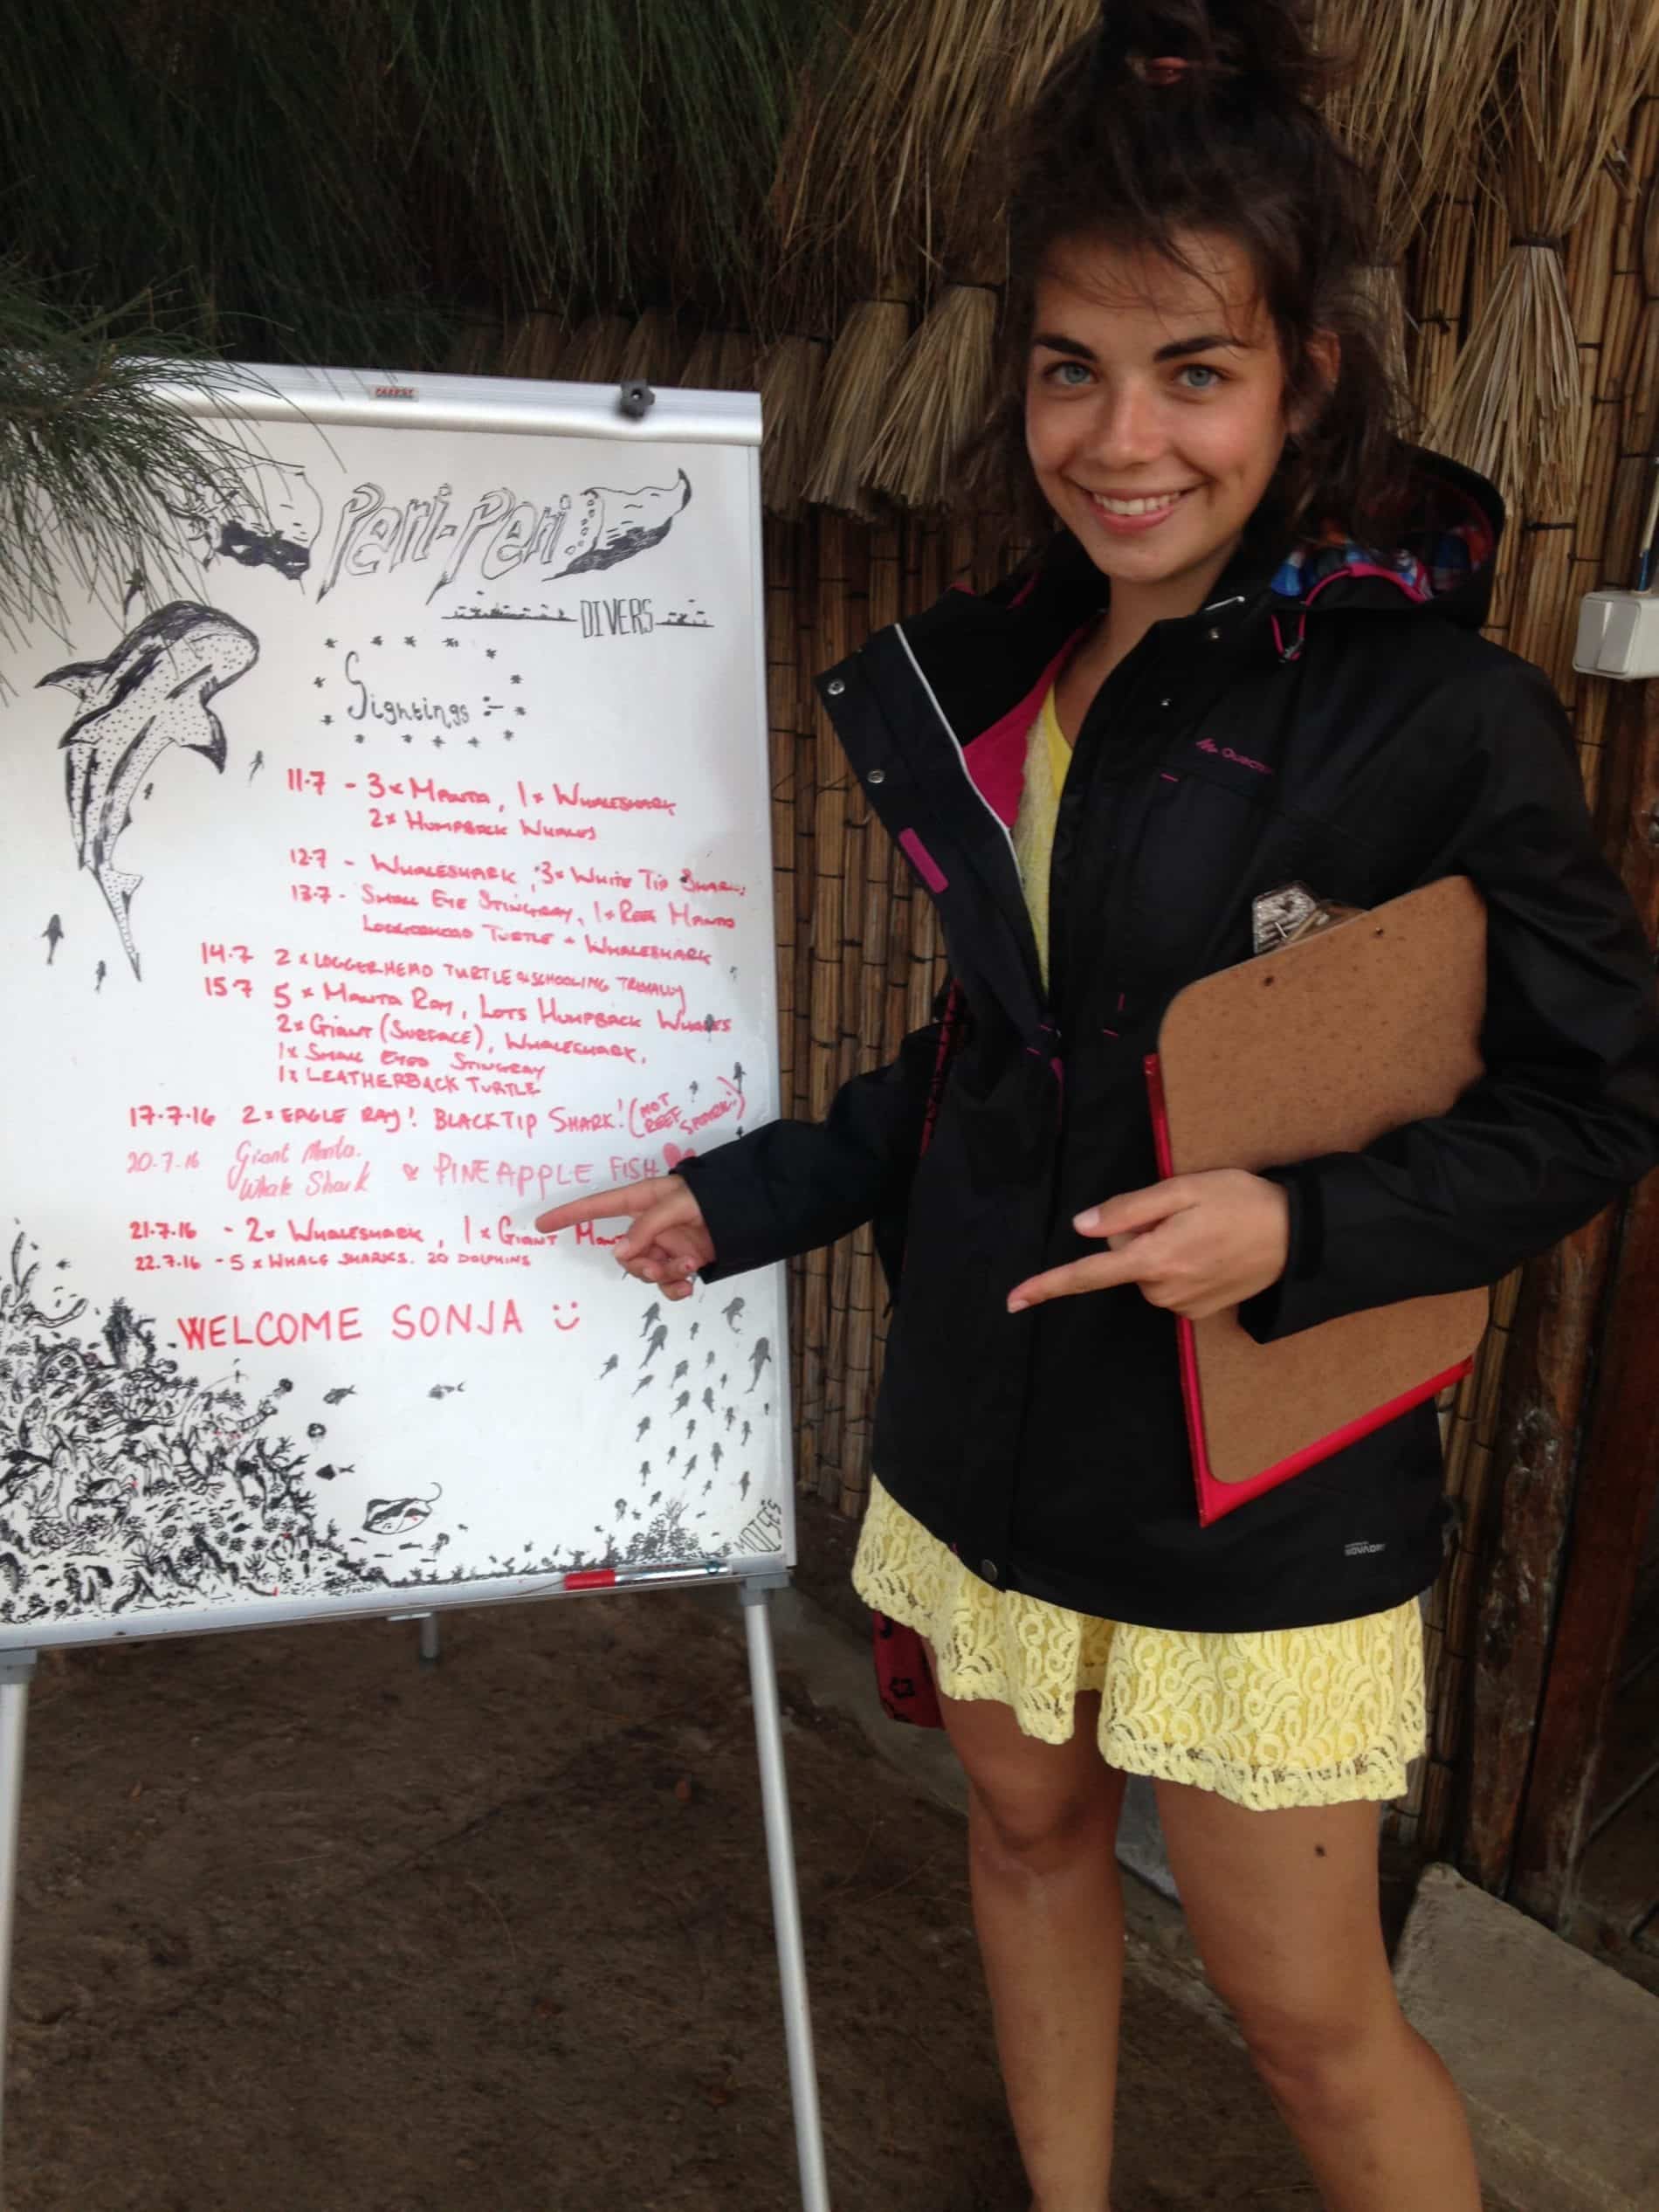 Peri-Peri
DIVERS
Sightings :-
11.7 - 3x MANTA, 1x WHALESHARK
2x HUMPBACK WHALES
12.7 - WHALESHARK, 3x WHITE TIP SHARKS
13.7 - SMALL EYE STINGRAY, 1x REEF MANTA
LOGGERHEAD TURTLE + WHALESHARK
14.7 2x LOGGERHEAD TURTLE & SCHOOLING
15.7 5x MANTA RAY, LOTS HUMPBACK WHALES
2x GIANT (SURFACE), WHALESHARK,
1x SMALL EYED STINGRAY
1x LEATHERBACK TURTLE
17.7.16 2x EAGLE RAY! BLACKTIP SHARK! (NOT REEF SHARK!)
20.7.16 Giant Manta.
Whale Shark & PINEAPPLE FISH
21.7.16 - 2x WHALESHARK, 1x GIANT
22.7.16 - 5 x WHALE SHARKS. 20 DOLPHINS
WELCOME SONJA :)